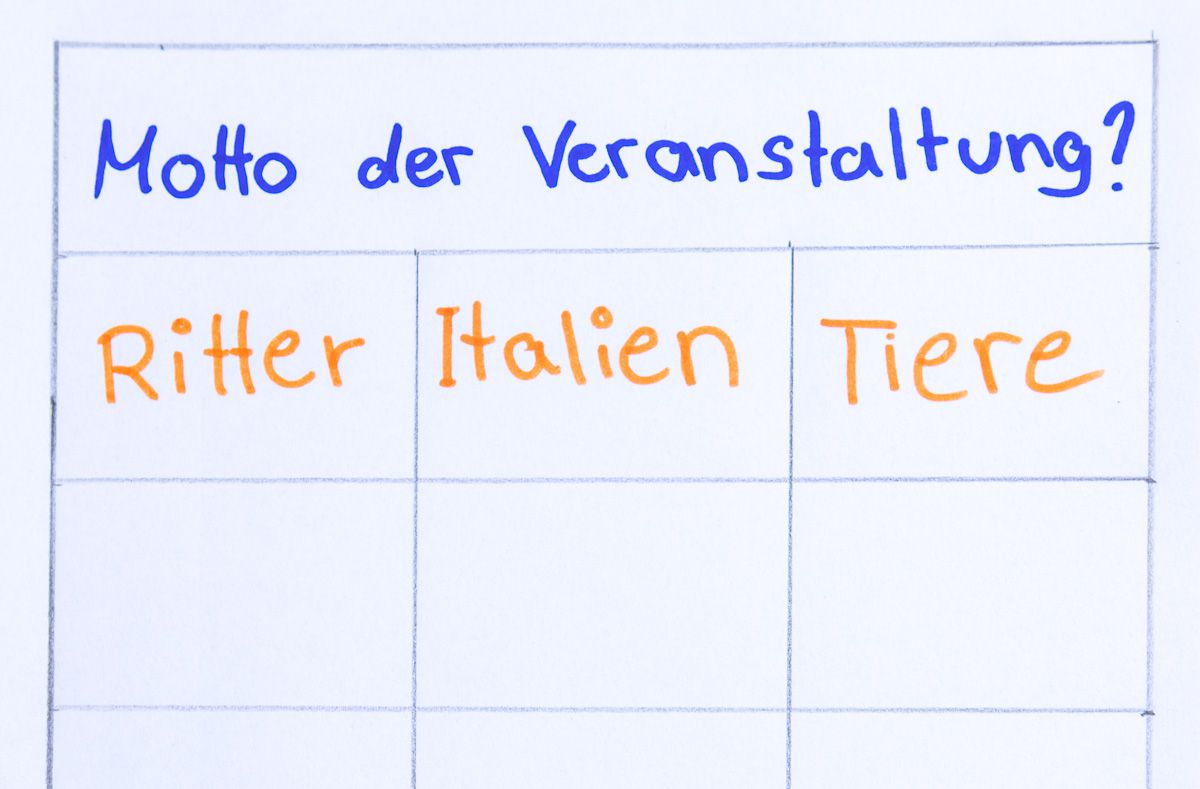 Motto der Veranstaltung?
Ritter Italien Tiere